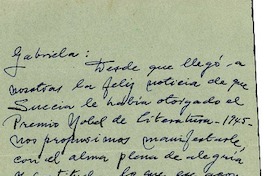 Gabriela:
Desde que llegó a
nosotras la feliz noticia de que
Suecia le había otorgado el
Premio Nobel de Literatura - 1945 -
nos propusimos manifestarle,
con el alma plena de alegría